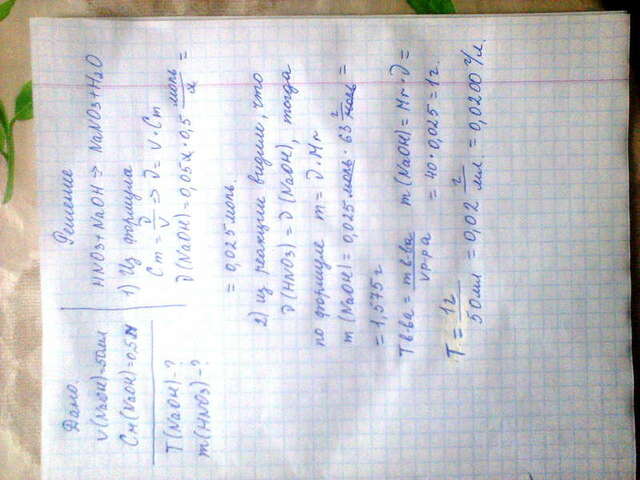 Дано.
V(NaOH)=50мл
Cм(NaOH)=0,5М
T(NaOH)-?
m(HNO3)-?
Решение
HNO3+NaOH → NaNO3+H2O
1) Из формула
Cm = ν/V => ν = V·Cm
ν(NaOH)=0,05л·0,5 моль/л =
= 0,025 моль.
2) из реакции видим, что
ν(HNO3) = ν(NaOH), тогда
по формуле m = ν·Mr
m(NaOH) = 0,025 моль · 63 г/моль =
= 1,575 г
T в-ва = m в-ва/V р-ра m(NaOH) = Mr·ν =
= 40·0,025 = 1г.
T = 1г/50мл = 0,02 г/мл = 0,0200 г/л.